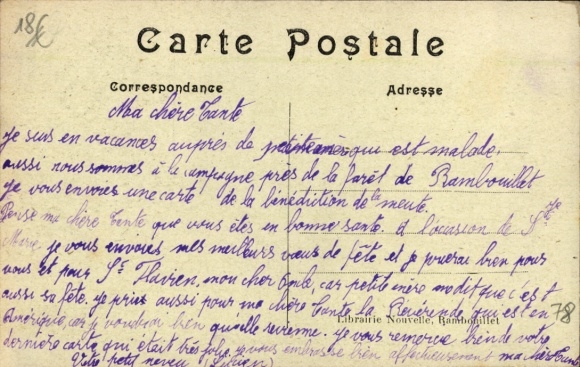 18f
Carte Postale
Correspondance
Adresse
Ma chère Tante
je suis en vacances auprès de petite mère qui est malade,
aussi nous sommes à la campagne près de la forêt de Rambouillet
je vous envoies une carte de la bénédiction de la meute.
Pense ma chère Tante que vous êtes en bonne santé. à l'occasion de Ste
Marie je vous envoies mes meilleurs vœux de fête et je prierai bien pour
vous et pour St Flavien, mon cher Oncle, car petite mère m'a dit que c'est
aussi sa fête. je prie aussi pour ma chère Tante la Révérende qui est en
Amérique, car je voudrai bien qu'elle revienne. je vous remercie bien de votre
Librairie Nouvelle, Rambouillet
78
dernière carte qui était très jolie. je vous embrasse bien affectueusement ma chère Tante
Votre petit neveu